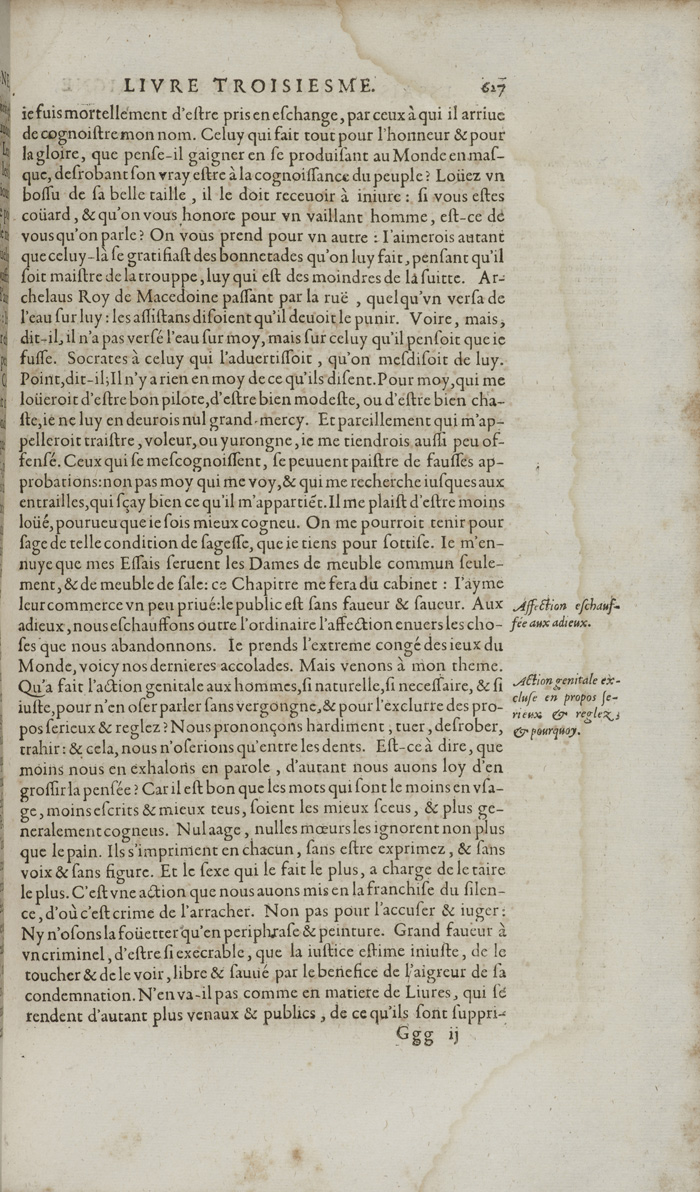 LIVRE TROISIESME. 627
ie fuis mortellement d'eſtre pris en eſchange, par ceux à qui il arriue
de cognoiſtre mon nom. Celuy qui fait tout pour l'honneur & pour
la gloire, que penſe-il gaigner en ſe produiſant au Monde en maſ-
que, deſrobant ſon vray eſtre à la cognoiſſance du peuple? Loüez vn
boſſu de ſa belle taille, il le doit receuoir à iniure: ſi vous eſtes
coüard, & qu'on vous honore pour vn vaillant homme, eſt-ce de
vous qu'on parle? On vous prend pour vn autre: I'aimerois autant
que celuy-là ſe gratifiaſt des bonnetades qu'on luy fait, penſant qu'il
ſoit maiſtre de la trouppe, luy qui eſt des moindres de la ſuitte. Ar-
chelaus Roy de Macedoine paſſant par la ruë, quelqu'vn verſa de
l'eau ſur luy: les aſſiſtans diſoient qu'il deuoit le punir. Voire, mais,
dit-il, il n'a pas verſé l'eau ſur moy, mais ſur celuy qu'il penſoit que ie
fuſſe. Socrates à celuy qui l'aduertiſſoit, qu'on meſdiſoit de luy.
Point, dit-il; Il n'y a rien en moy de ce qu'ils diſent. Pour moy, qui me
loüeroit d'eſtre bon pilote, d'eſtre bien modeſte, ou d'eſtre bien cha-
ſte, ie ne luy en deurois nul grand-mercy. Et pareillement qui m'ap-
pelleroit traiſtre, voleur, ou yurongne, ie me tiendrois auſſi peu of-
fenſé. Ceux qui ſe meſcognoiſſent, ſe peuuent paiſtre de fauſſes ap-
probations: non pas moy qui me voy, & qui me recherche iuſques aux
entrailles, qui ſçay bien ce qu'il m'appartiẽt. Il me plaiſt d'eſtre moins
loüé, pourueu que ie ſois mieux cogneu. On me pourroit tenir pour
ſage de telle condition de ſageſſe, que ie tiens pour ſottiſe. Ie m'en-
nuye que mes Eſſais ſeruent les Dames de meuble commun ſeule-
ment, & de meuble de ſale: ce Chapitre me fera du cabinet: I'ayme
leur commerce vn peu priué: le public eſt ſans faueur & ſaueur. Aux
adieux, nous eſchauffons outre l'ordinaire l'affection enuers les cho-
ſes que nous abandonnons. Ie prends l'extreme congé des ieux du
Monde, voicy nos dernieres accolades. Mais venons à mon theme.
Qu'a fait l'action genitale aux hommes, ſi naturelle, ſi neceſſaire, & ſi
iuſte, pour n'en oſer parler ſans vergongne, & pour l'exclurre des pro-
pos ſerieux & reglez? Nous prononçons hardiment, tuer, deſrober,
trahir: & cela, nous n'oſerions qu'entre les dents. Eſt-ce à dire, que
moins nous en exhalons en parole, d'autant nous auons loy d'en
groſſir la penſée? Car il eſt bon que les mots qui ſont le moins en vſa-
ge, moins eſcrits & mieux teus, ſoient les mieux ſceus, & plus ge-
neralement cogneus. Nul aage, nulles mœurs les ignorent non plus
que le pain. Ils s'impriment en chacun, ſans eſtre exprimez, & ſans
voix & ſans figure. Et le ſexe qui le fait le plus, a charge de le taire
le plus. C'eſt vne action que nous auons mis en la franchiſe du ſilen-
ce, d'où c'eſt crime de l'arracher. Non pas pour l'accuſer & iuger:
Ny n'oſons la foüetter qu'en periphraſe & peinture. Grand faueur à
vn criminel, d'eſtre ſi execrable, que la iuſtice eſtime iniuſte, de le
toucher & de le voir, libre & ſauué par le benefice de l'aigreur de ſa
condemnation. N'en va-il pas comme en matiere de Liures, qui ſe
rendent d'autant plus venaux & publics, de ce qu'ils ſont ſuppri-
Ggg ij
Affection eſchauf-
fée aux adieux.
Action genitale ex-
cluſe en propos ſe-
rieux & reglez;
& pourquoy.